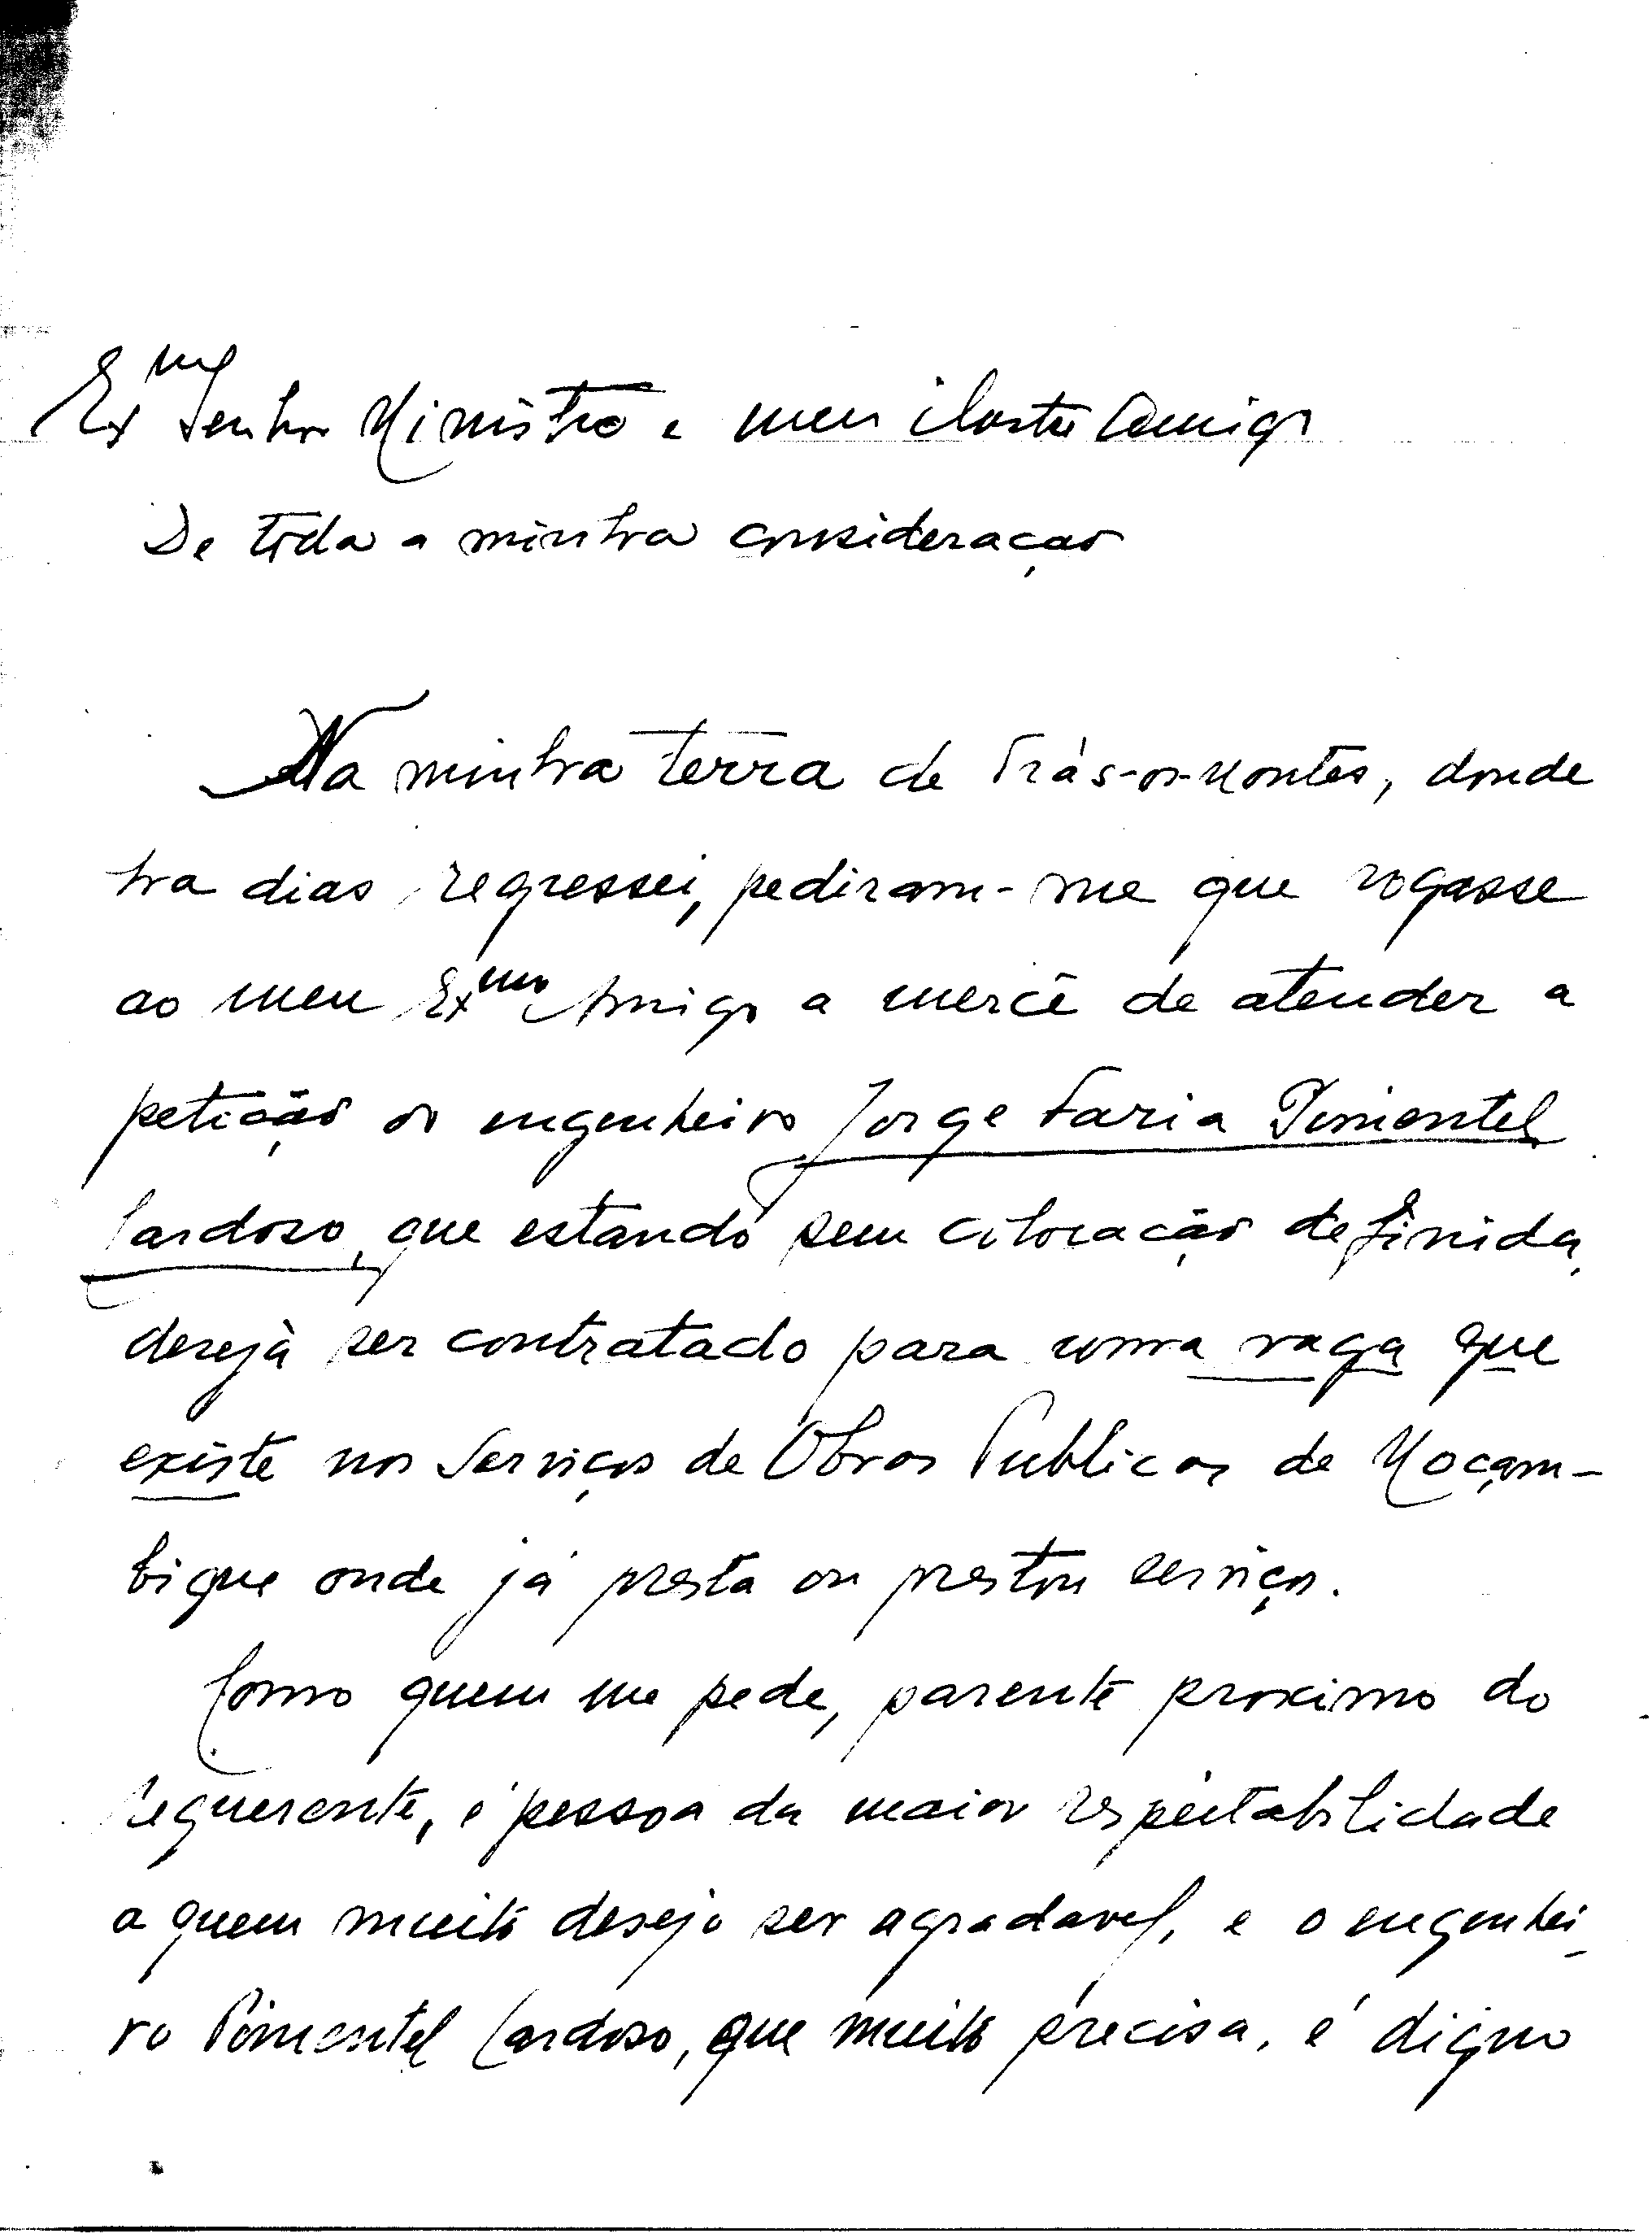 Exmo Senhor Ministro e meu ilustre Amigo
De toda a minha consideração
Na minha terra de Trás-os-Montes, donde
ha dias regressei, pediram-me que rogasse
ao meu Exmo Amigo a mercê de atender a
petição do engenheiro Jorge Faria Pimentel
Cardoso, que estando sem colocação definida,
deseja ser contratado para uma vaga que
existe nos Serviços de Obras Publicas de Moçam-
bique onde já presta ou prestou serviço.
Como quem me pede, parente proximo do
requerente, é pessoa da maior respeitabilidade
a quem muito desejo ser agradavel, e o engenhei-
ro Pimentel Cardoso, que muito precisa, é digno